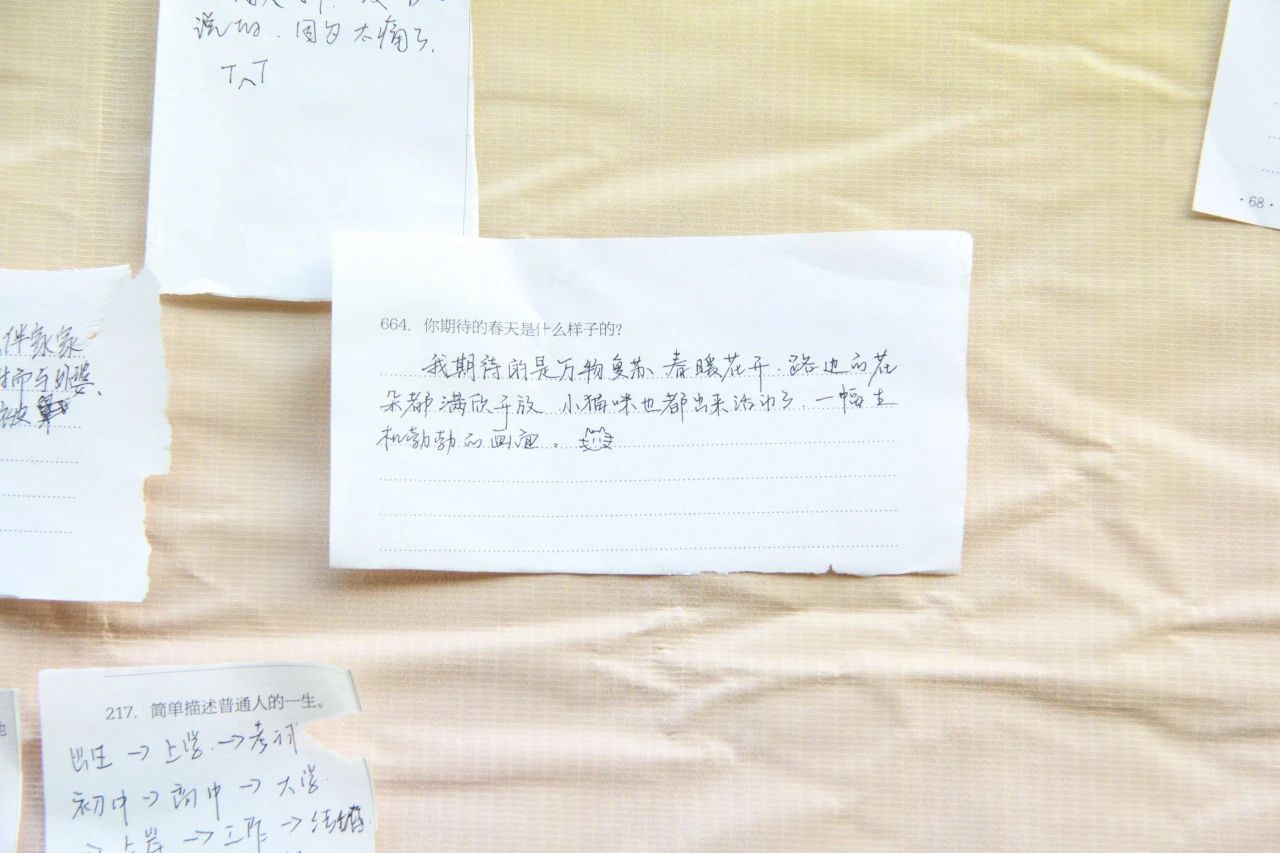 说的.因为太痛了.
T^T
·68·
伴家家
师与外婆、
664. 你期待的春天是什么样子的?
我期待的是万物复苏、春暖花开.路边的花
朵都满欣开放 小猫咪也都出来活动了.一幅生
机勃勃的画面。
217. 简单描述普通人的一生。
出生→上学.→考试
初中→高中→大学
→上岸→工作→结婚.